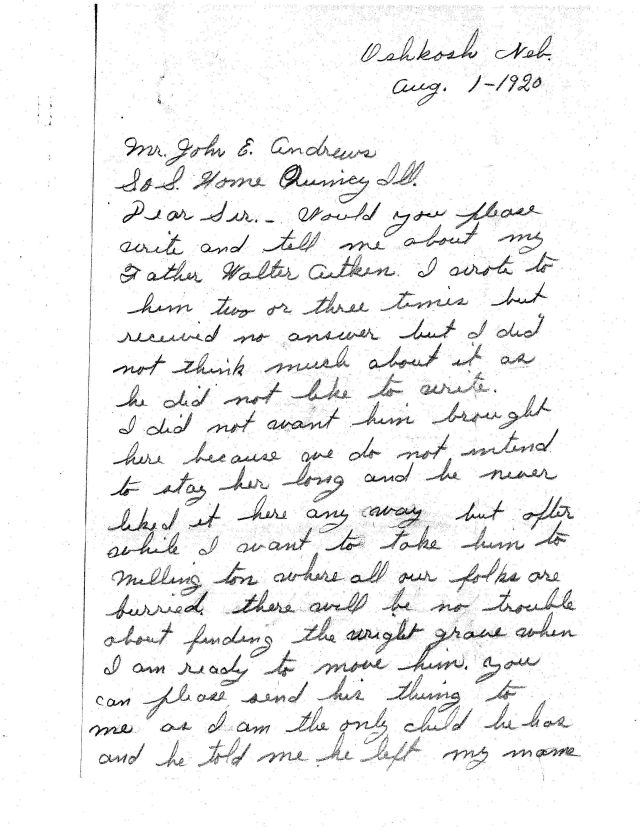 Oshkosh Neb.
Aug. 1-1920
Mr. John E. Andrews
S o S. Home Quincy Ill.
Dear Sir. - Would you please
write and tell me about my
Father Walter Aitken. I wrote to
him two or three times but
received no answer but I did
not think much about it as
he did not like to write.
I did not want him brought
here because we do not intend
to stay her long and he never
liked it here any way but after
while I want to take him to
Milling ton where all our folks are
burried. there will be no trouble
about finding the wright grave when
I am ready to move him. you
can please send his thing to
me as I am the only child he has
and he told me he left my name